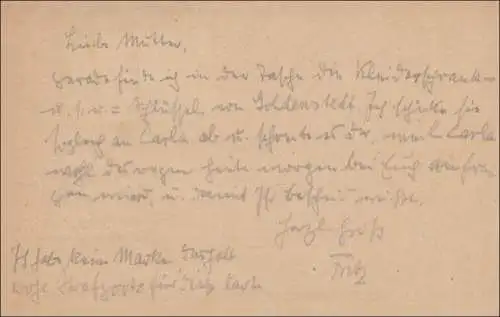 Liebe Mutter,
gerade finde ich in der Tasche die Kleiderschrank-
u.s.w.= Schlüssel von Goldenstedt. Ich schicke sie
sogleich an Carla ab u. schreibe es dir, weil Carla
wohl deswegen heute morgen bei Euch anfra-
gen wird, u. damit Ihr Bescheid wißt.
Herzl Gruß
Fritz
Ich habe kein Marke deshalb
Strafporto für Karte